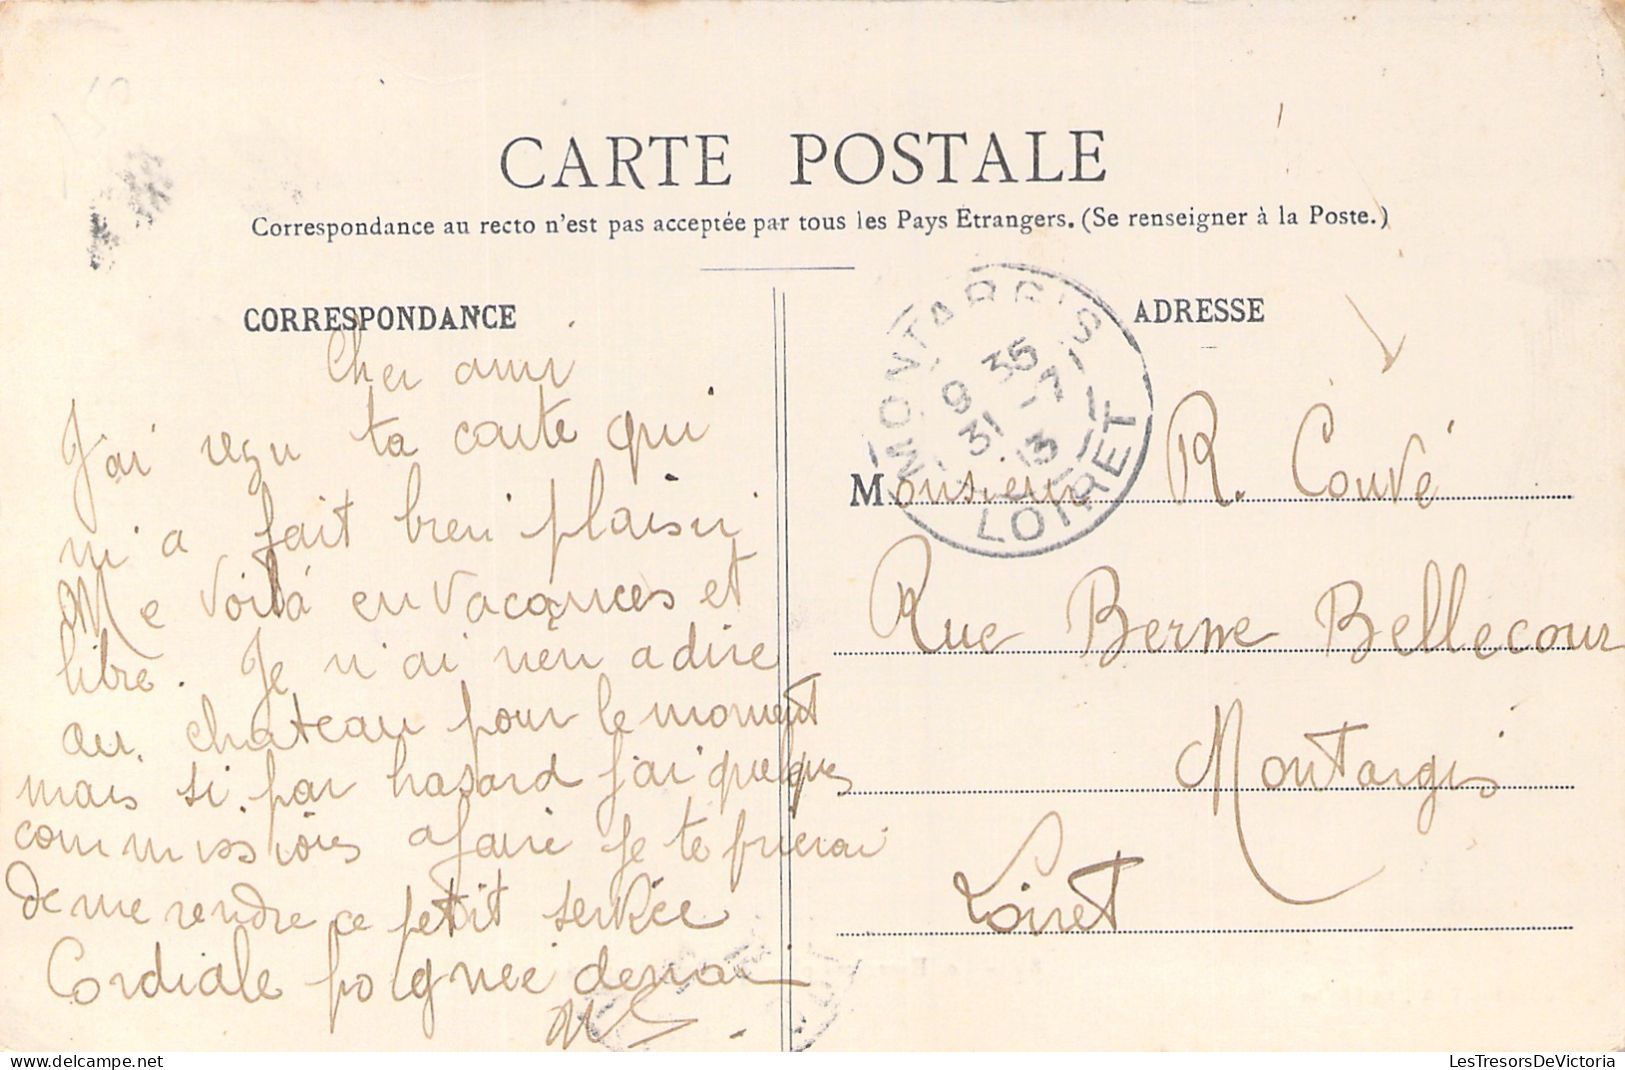 CARTE POSTALE
Correspondance au recto n'est pas acceptée par tous les Pays Etrangers. (Se renseigner à la Poste.)
CORRESPONDANCE
Cher ami
J'ai reçu ta carte qui
m'a fait bien plaisir
Me voilà en vacances et
libre. Je n'ai rien a dire
au chateau pour le moment
mais si par hasard j'ai quelques
commissions a faire je te prierai
de me rendre ce petit service
Cordiale poignée de mai
ADRESSE
MONTARGIS
9 35
31 - 7
13
LOIRET
Monsieur R. Couvé
Rue Berne Bellecour
Montargis
Loiret
LesTresorsDeVictoria